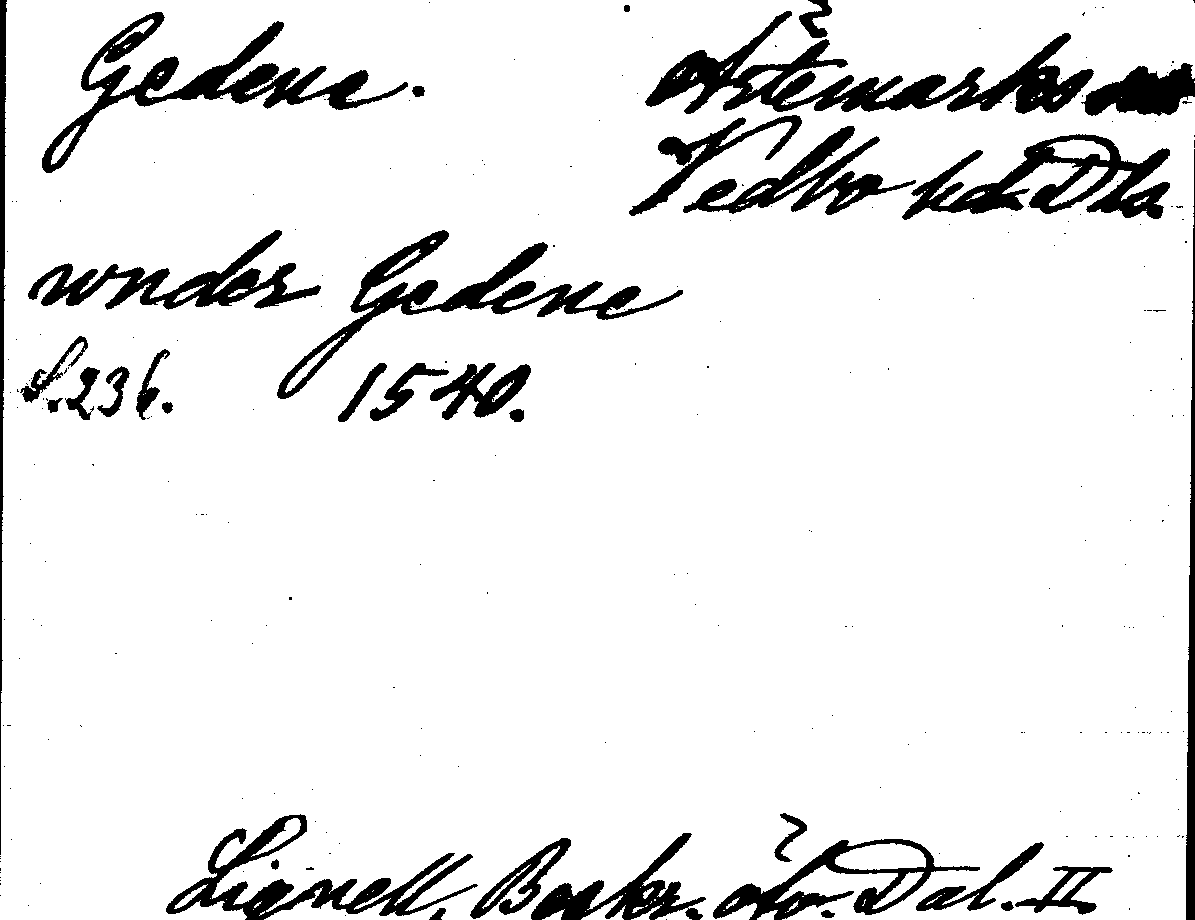 Gedene. Ärtemarks
Vedbo hd. Dld.
wnder Gedene
S.236. 1540.
Lignell, Beskr. öfv. Dal. II.